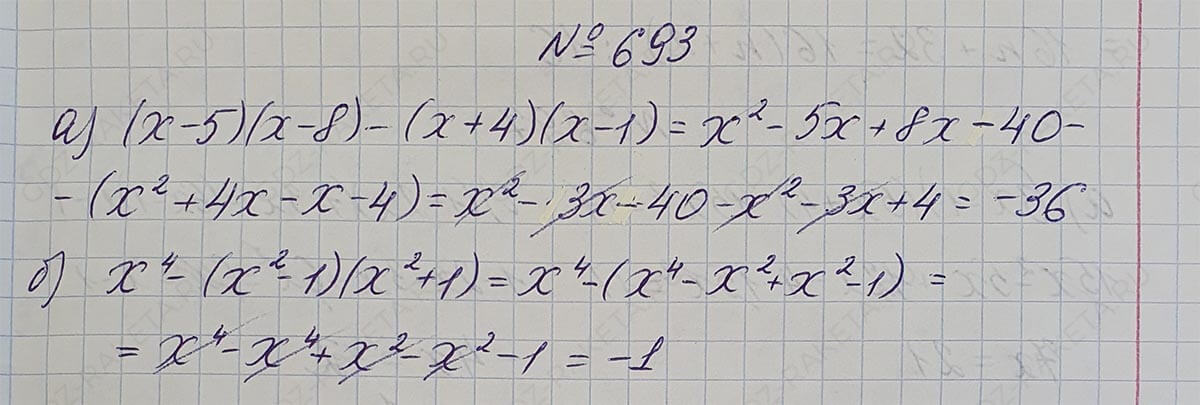 № 693
а) (x-5)(x-8)-(x+4)(x-1)=x²-5x+8x-40-
-(x²+4x-x-4)=x²-3x-40-x²-3x+4=-36
б) x⁴-(x²-1)(x²+1)=x⁴-(x⁴-x²+x²-1)=
=x⁴-x⁴+x²-x²-1=-1